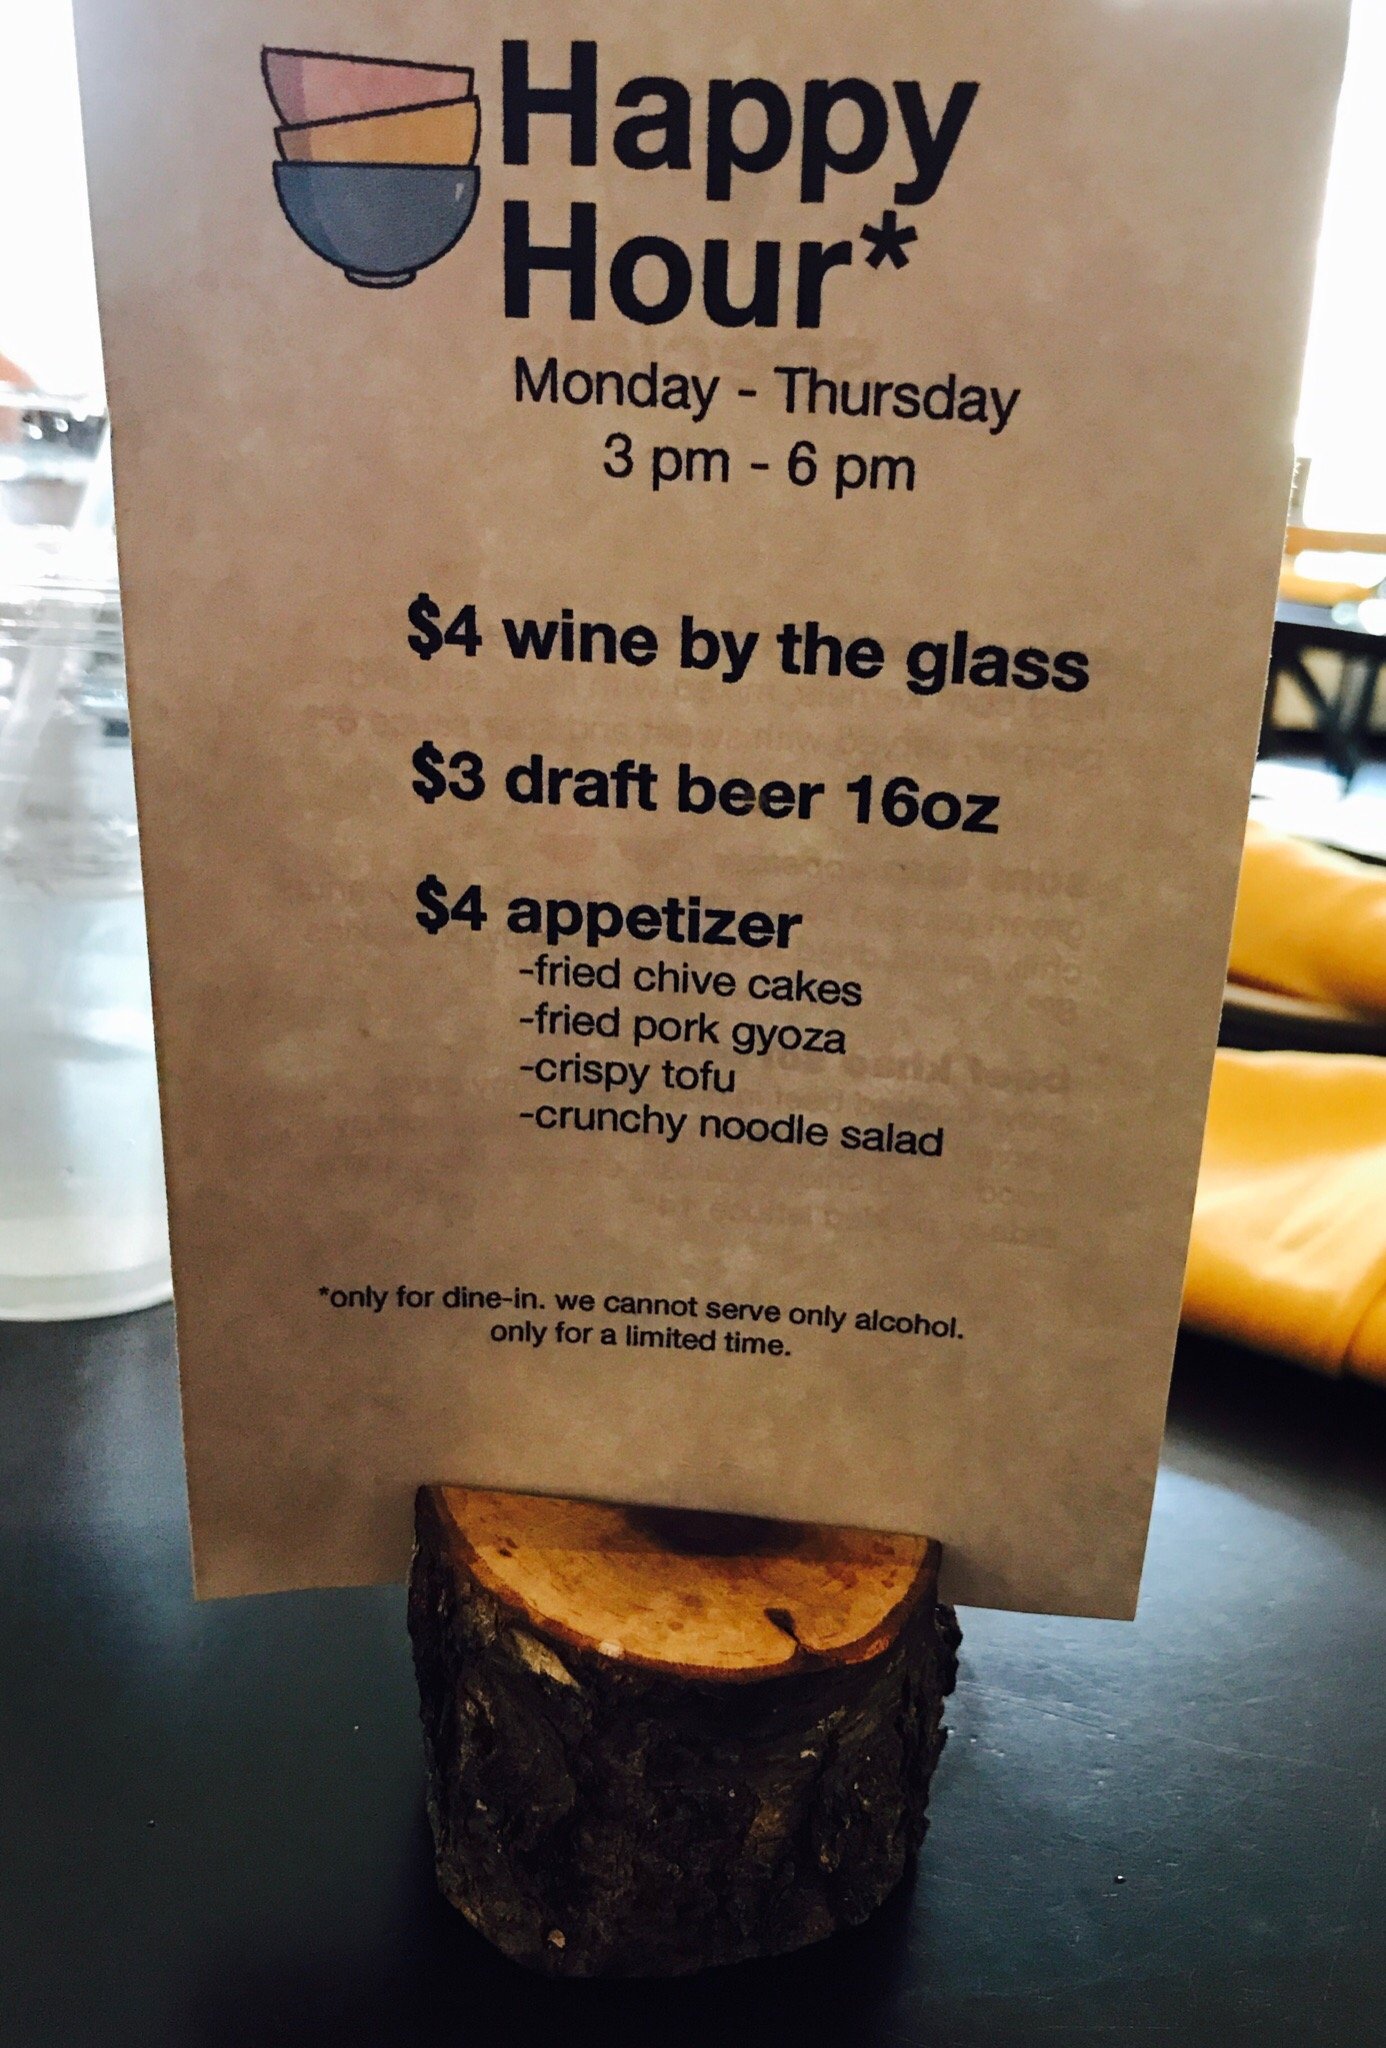 Happy
Hour*
Monday - Thursday
3 pm - 6 pm
$4 wine by the glass
$3 draft beer 16oz
$4 appetizer
-fried chive cakes
-fried pork gyoza
-crispy tofu
-crunchy noodle salad
*only for dine-in. we cannot serve only alcohol.
only for a limited time.